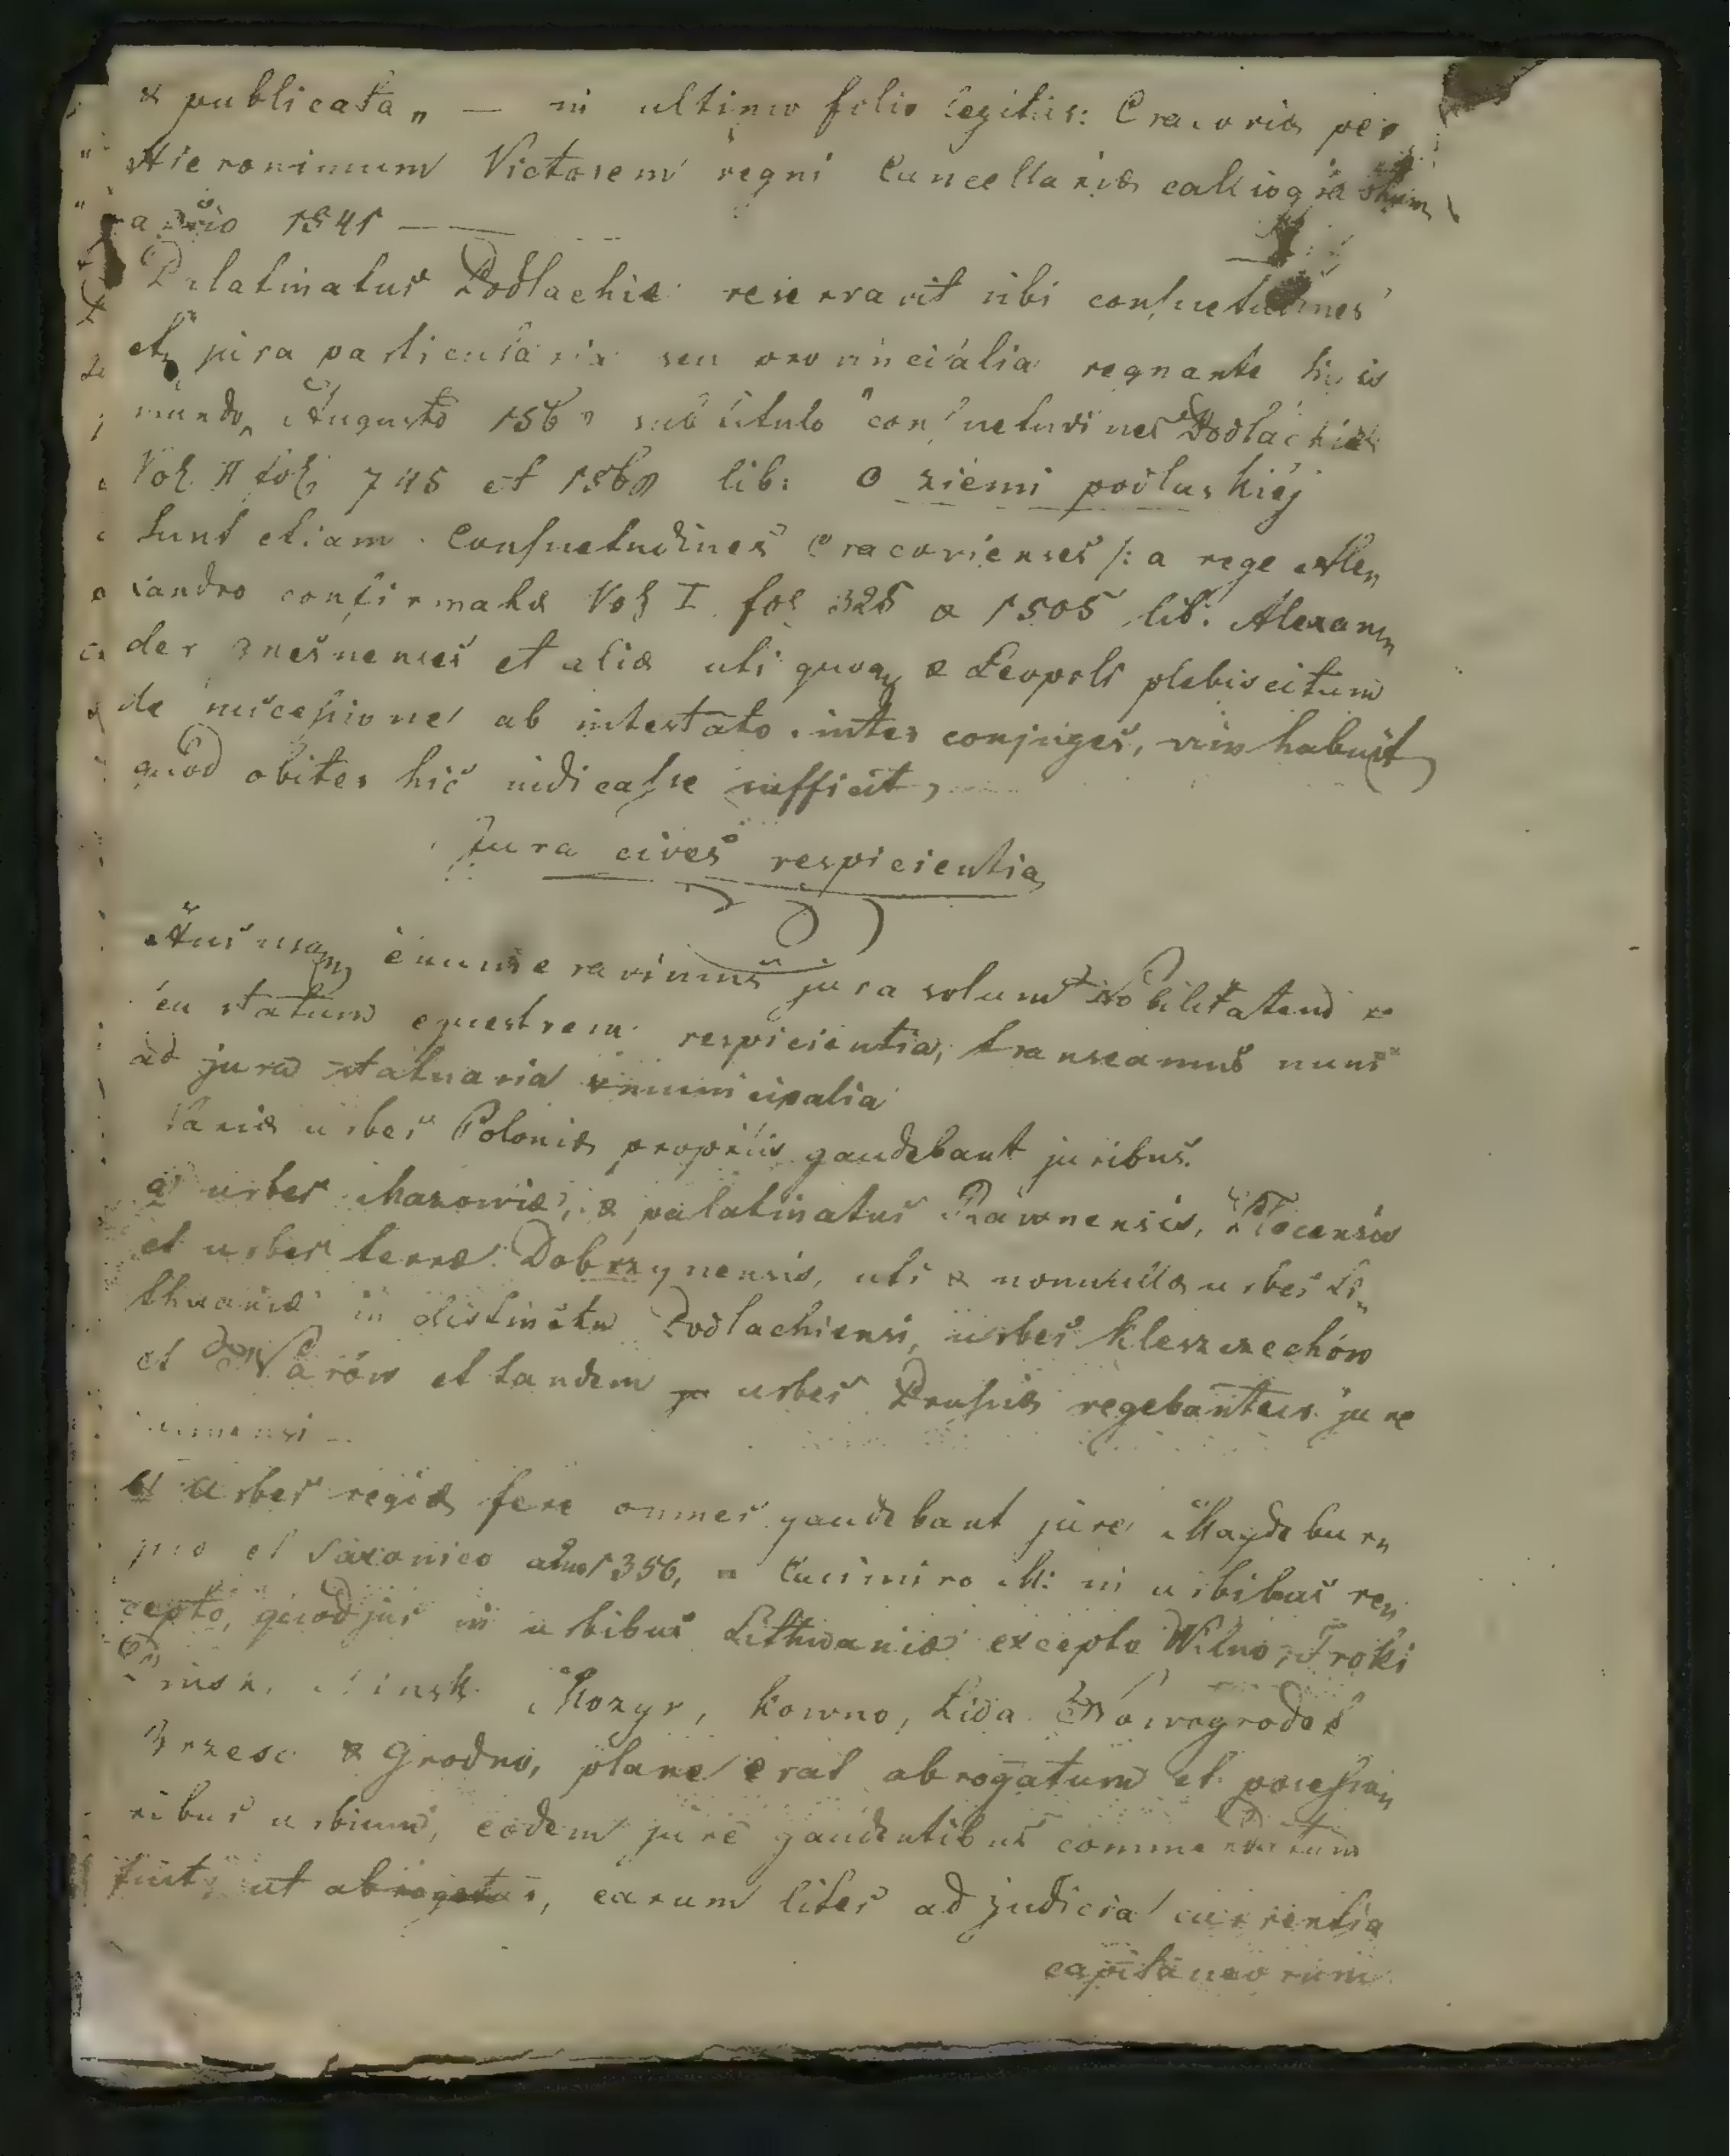 & publicata„ — in ultimo folio legitur: Cracoviæ per
Hieronimum Victorem regni Cancellariæ caliographum
a 1541 —
Palatinatus Podlachiæ reservavit sibi consuetudines
et jura particularia seu provincialia regnante Sigis
mundo„ Augusto 156 sub titulo "consuetudines Podlachiæ
Vol II fol: 745 et 1569 lib: O ziemi podlaskiéj
Sunt etiam Consuetudines Cracovienses /: a rege Alex„
xandro confirmatæ Vol I fol 325 a 1505 lib: Alexan„
der Gnesnenses et aliæ uti quoq & Leopoli plebiscitum
de successione ab intestato inter conjuges, vim habuit
quod obiter hic indicasse sufficit,
Jura cives respicientia
Hus usq enumeravimus jura solum Nobilitatem &
eu statum equestrem respicientia, transeamus nunc
ad jura statuaria municipalia
Variæ urbes Poloniæ propriis gaudebant juribus.
a) urbes Mazowiæ, & palatinatus Rawnensis, Plocensis
et urbes terræ Dobrzynensis, uti & nonnullæ urbes Li„
thuaniæ in districtu Podlachiensi, urbes Kleszczechów
et Narów et tandem urbes Prussiæ regebantur jure
b) Urbes regiæ fere omnes gaudebant jure Magdebur„
gico et Saxonico anno 1356, a Casimiro M: in urbibus re„
cepto, quod jus in urbibus Lithvaniæ excepto Wilno, Troki
Pinsk, Minsk Mozyr, Kowno, Lida Nowogrodek
Brzesc & Grodno, plane erat abrogatum et possesso„
ribus urbium, eodem jure gaudentibus commendatum
fuit, ut abrogetur, earum lites ad judicia currentia
capitaneorum